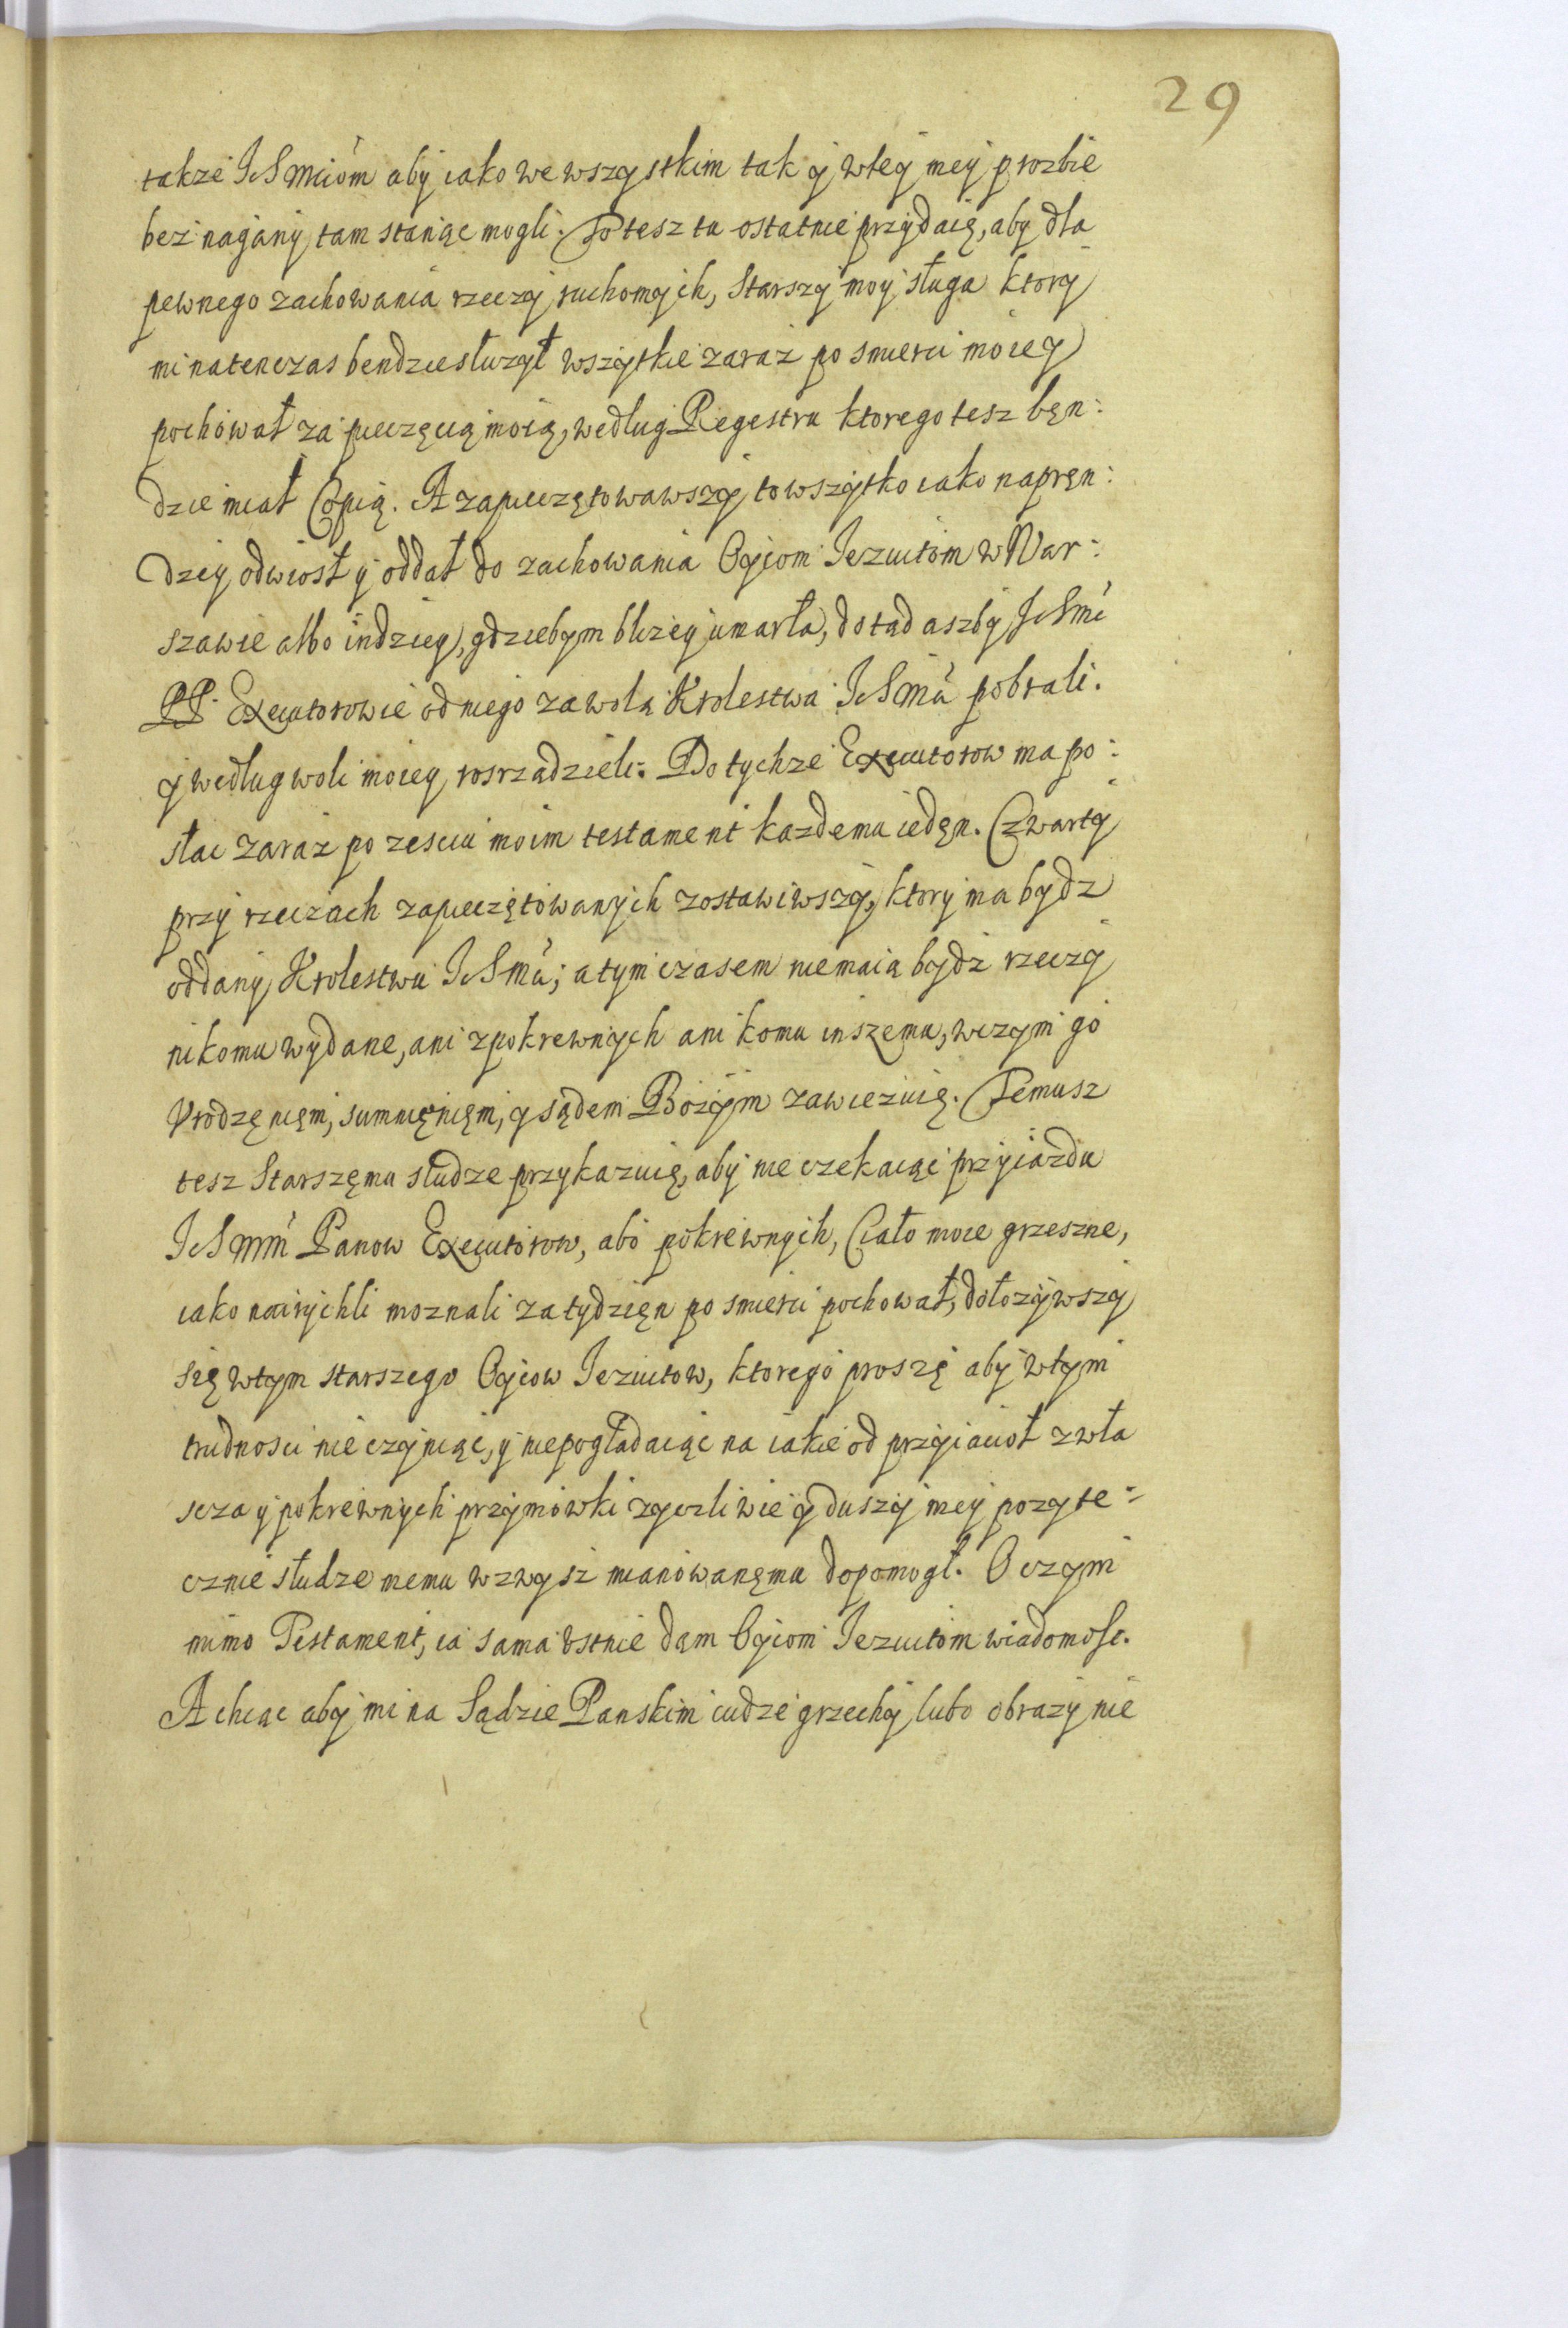 29
takze IchMciom aby iako we wszystkim tak y wtey mey prozbie
bez nagany tam stanąc mogli. To tesz tu ostatnie przydaię, aby dla
pewnego zachowania rzeczy ruchomych, Starszy moy sługa ktory
mi natenczas bendzie słuzył wszytkie zaraz po smierci moiey
pochował za pieczęcią moią, według Regestru ktorego tesz bęn:
dzie miał Copią. A zapieczętowawszy to wszytko iako napręn:
dzey odwiosł y oddał do zachowania Oycom Iezuitom w War:
szawie albo indziey, gdziebym blizey umarła, dotąd aszby Ich Mć
PP. Executorowie od niego za wolą Krolestwa Ich Mci pobrali.
y według woli moiey rosrządzieli. Do tychze Executorow ma po:
słac zaraz po zesciu moim testament kazdemu iedęn. Czwarty
przy rzeczach zapieczętowanych zostawiwszy, ktory ma bydz
oddany Krolestwu Ich Mci; a tym czasem niemaią bydz rzeczy
nikomu wydane, ani zpokrewnych ani komu inszemu, wczym go
Vrodzęnięm, sumnięnięm, y sądem Bozym zawięzuię. Temusz
tesz Starszęmu słudze przykazuię, aby nie czekaiąc przyiazdu
Ich Mm Panow Executorow, abo pokrewnych, Ciało moie grzeszne,
iako nairychli moznali za tydzięn po smierci pochował, dołozywszy
się wtym starszego Oycow Iezuitow, ktorego proszę aby wtym
trudnosci nie czyniąc, y niepoglądaiąc na iakie od przyiacioł zwła
scza y pokrewnych przymowki zyczliwie y duszy mey pozyte:
cznie słudze memu wzwysz mianowanęmu dopomogł. O czym
mimo Testament, ia sama vstnie dam Oycom Iezuitom wiadomosc.
A chcąc aby mi na Sądzie Panskim cudze grzechy lubo obrazy nie